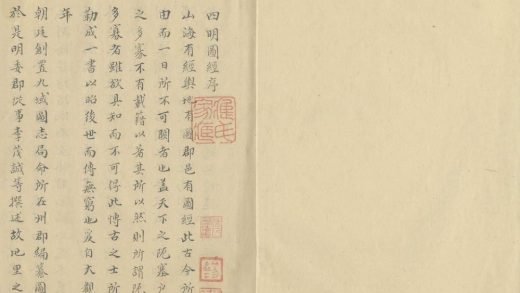 四明圖經序
山海有經輿地有圖郡邑有圖經此古今所
由而一日所不可闕者也蓋天下之阨塞
之多寡不有載籍以著其所以然則所謂阨
多寡者雖欲具知而不可得此博古之士所
勒成一書以昭後世而傳無窮也爰自大觀
年
朝廷創置九域圖志局命所在州郡編纂圖
於是明委郡從事李茂誠等撰述故地里之